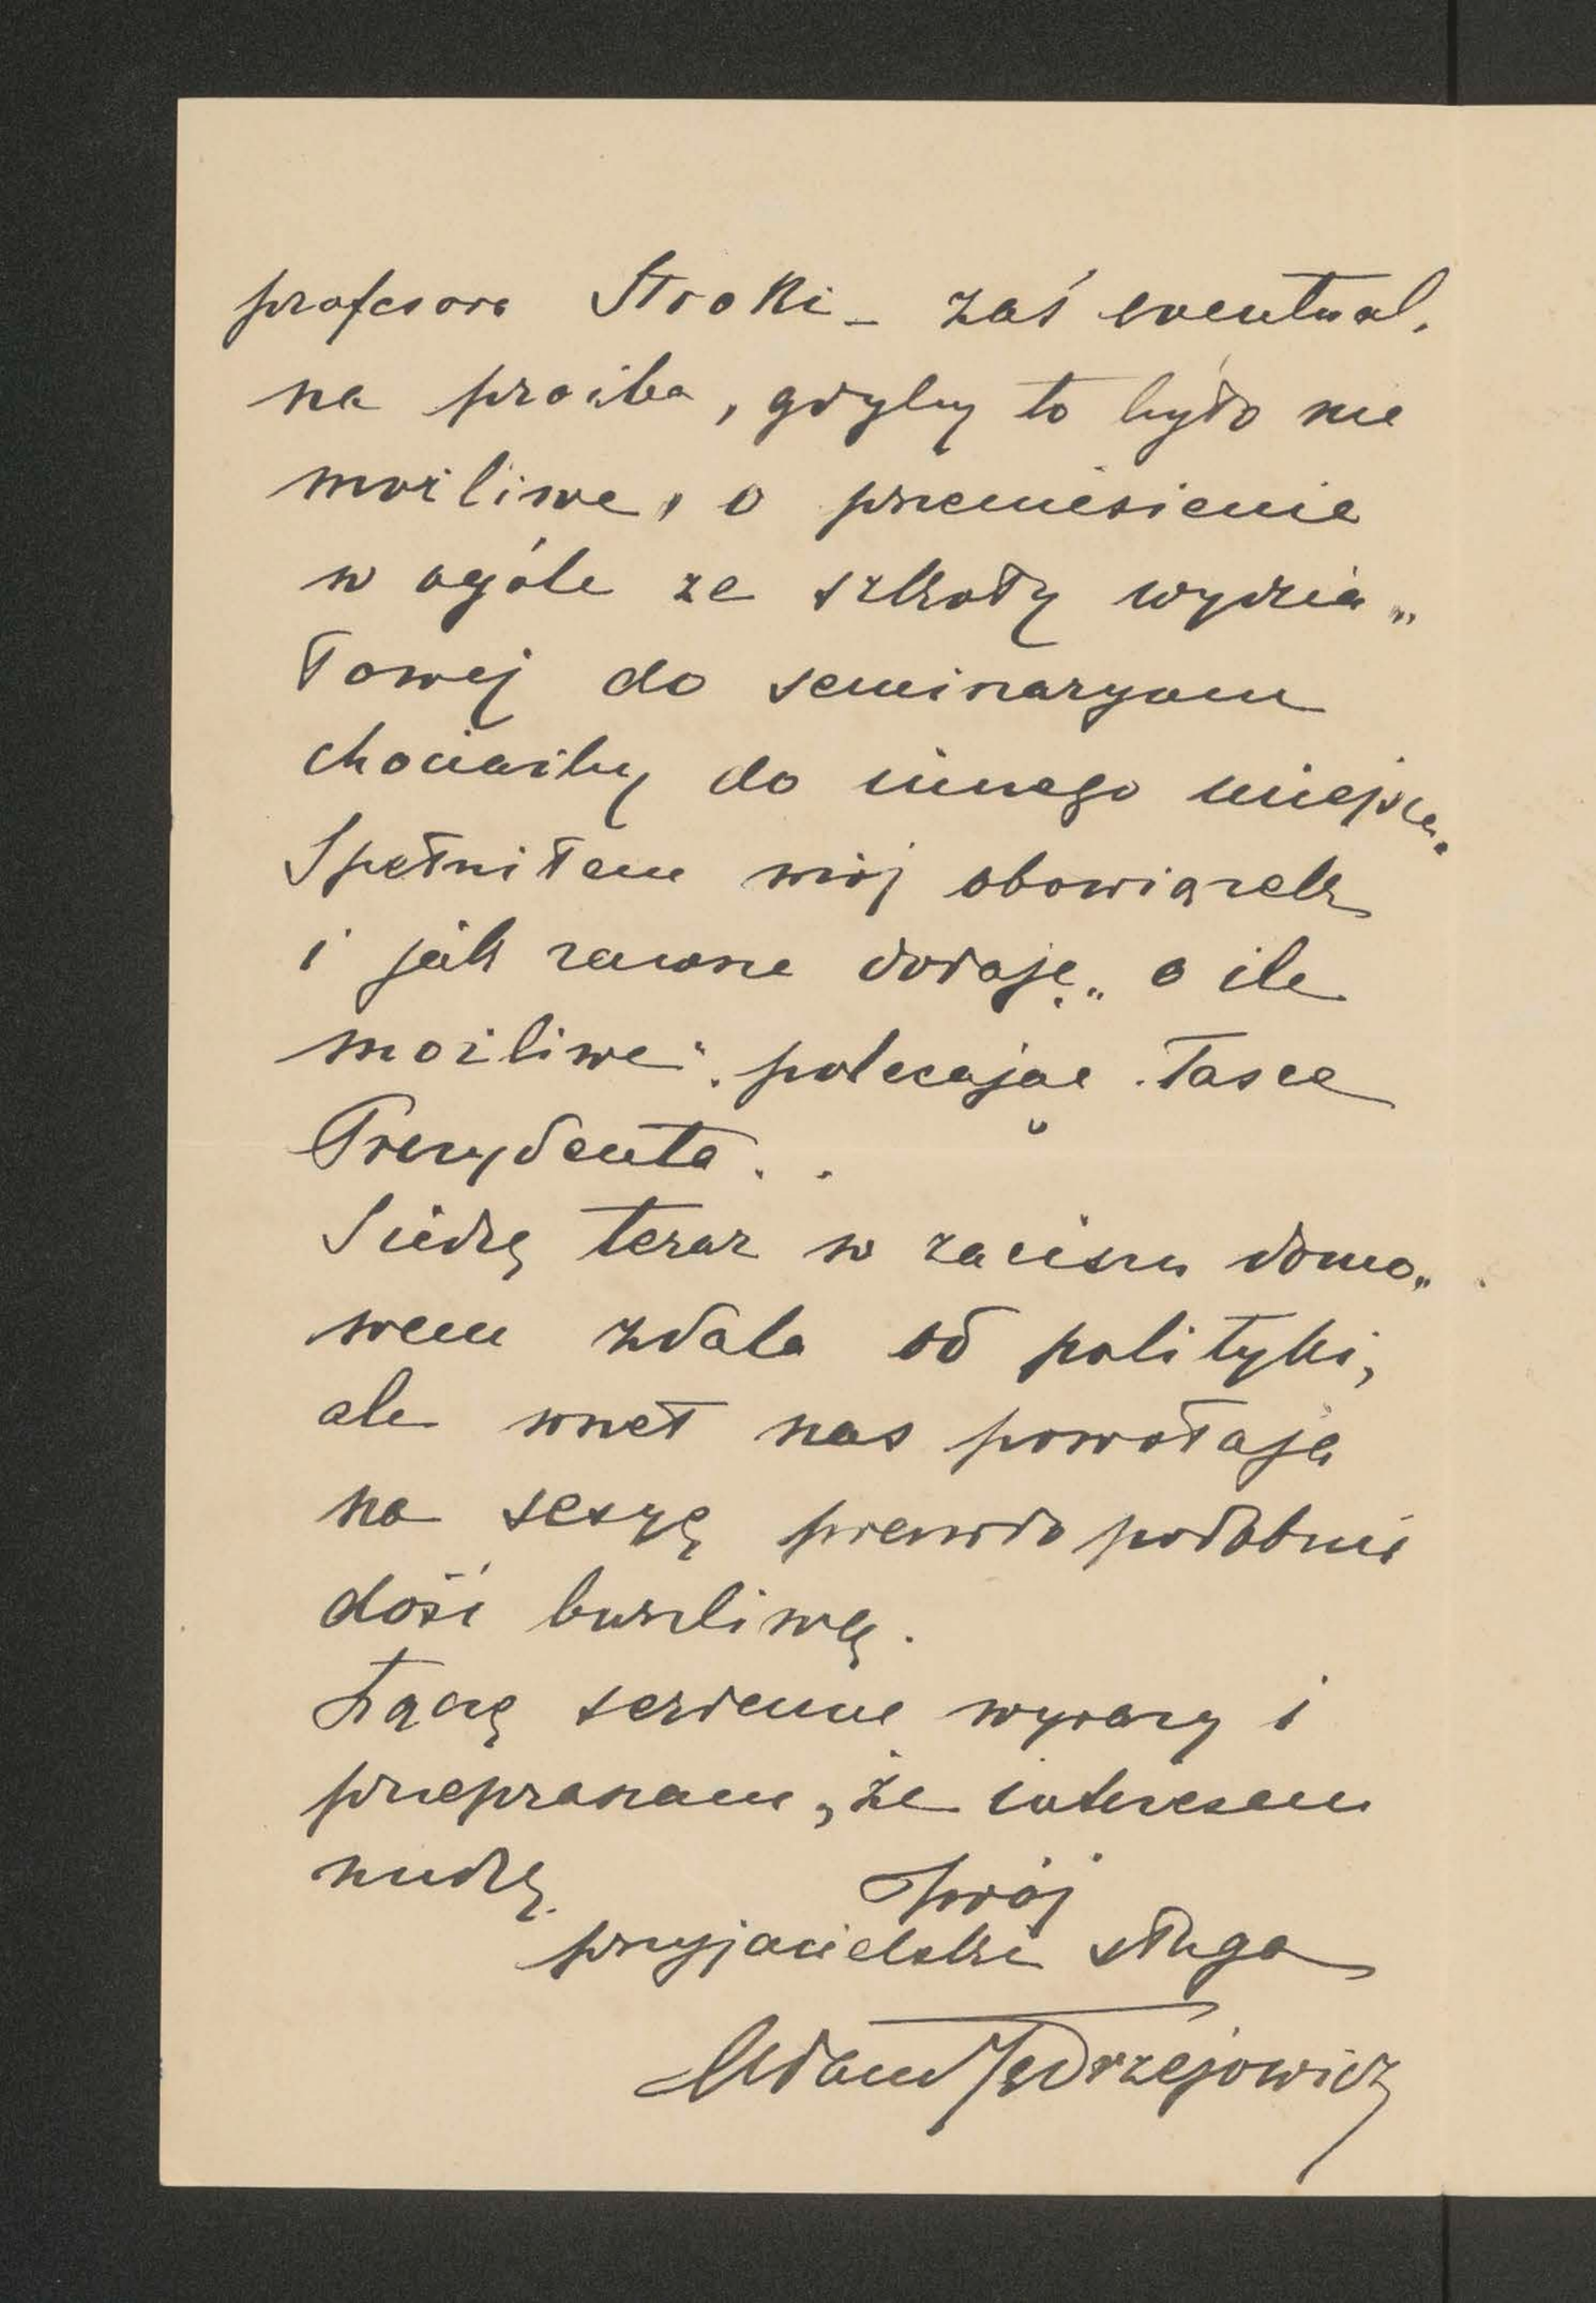 profesora Stroki – zaś eventual,
na prośba, gdyby to było nie
możliwe, o przeniesienie
w ogóle ze szkoły wydzia„
łowej do seminaryum
chociażby do innego miejsca.
Spełniłem mój obowiązek
i jak zawsze dodaję „o ile
możliwe“. polecając łasce
Prezydenta..
Siedzę teraz w zaciszu domo„
wem zdala od polityki,
ale wnet nas powołają
na sesyę prawdopodobnie
dość burzliwą.
Łączę serdeczne wyrazy i
przepraszam, że interesem
nudzę.
Twój
przyjacielski sługa
Adam Jędrzejowicz